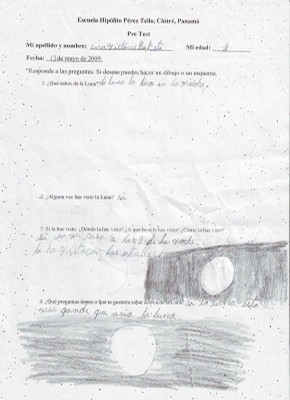 Escuela Hipólito Pérez Tello, Chitré, Panamá
Pre Test
Mi apellido y nombre: Batista Mi edad: 8
Fecha: 13 de mayo de 2009.
"Responde a las preguntas. Si deseas puedes hacer un dibujo o un esquema.
1. ¿Qué sabes de la Luna? la luna la beo en la noche.
2. ¿Alguna vez has visto la Luna? Si
3. Si la has visto. ¿Dónde la has visto? ¿A qué hora la has visto? ¿Cómo la has visto?
Si en mi casa a las 8 de la noche
las estrellas
4. ¿Qué preguntas tienes o qué te gustaría saber acerca de la Luna? si la luna esta
muy gande que aria la luna